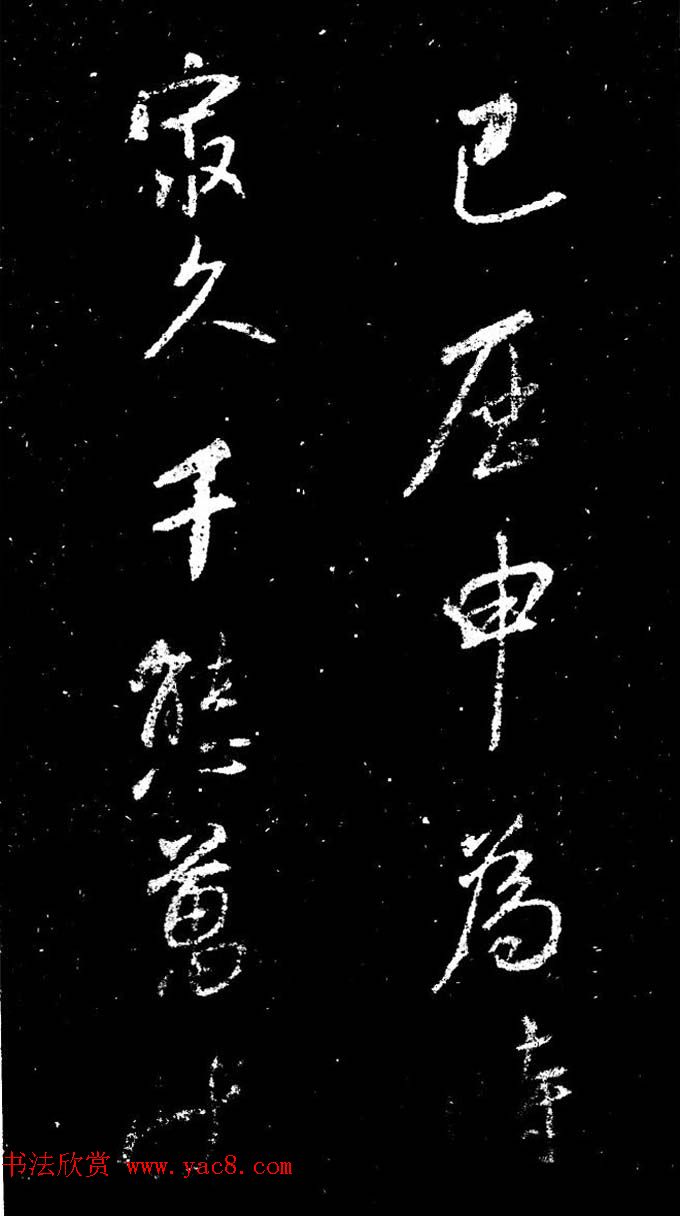 已屈申為時
㝡久千態萬
书法欣赏 www.yac8.com